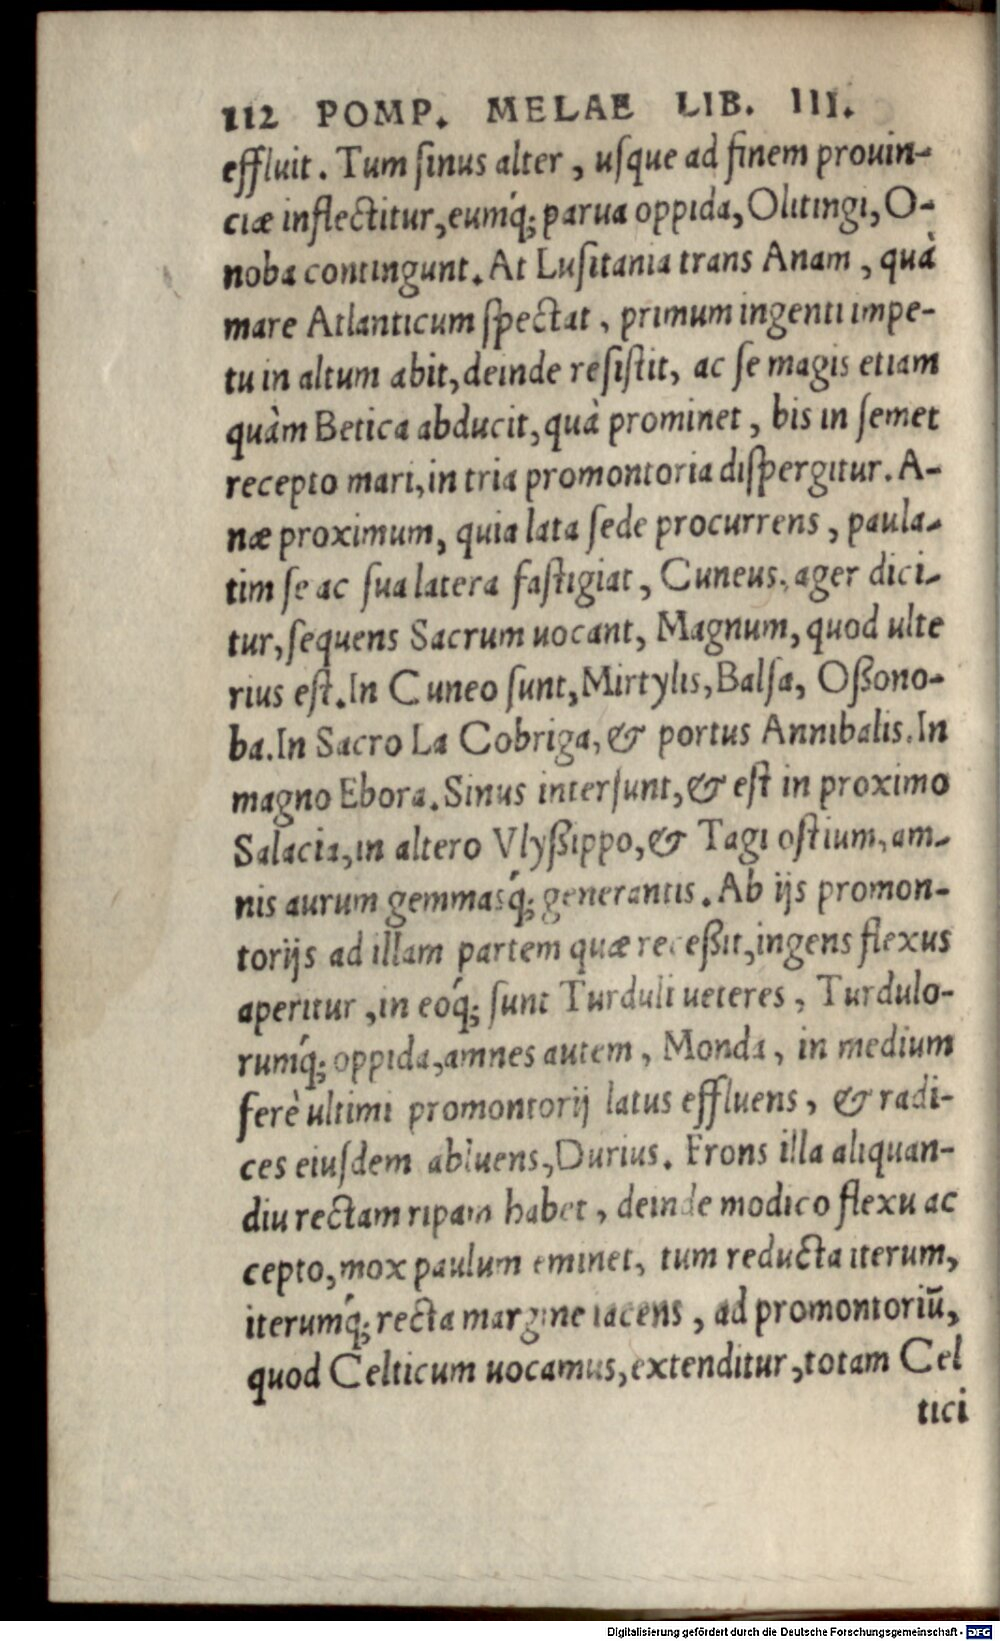 112 POMP. MELAE LIB. III.
effluit. Tum ſinus alter, uſque ad finem prouin-
ciæ inflectitur, eumq́; parua oppida, Olitingi, O-
noba contingunt. At Luſitania trans Anam, quà
mare Atlanticum ſpectat, primum ingenti impe-
tu in altum abit, deinde reſiſtit, ac ſe magis etiam
quàm Betica abducit, quà prominet, bis in ſemet
recepto mari, in tria promontoria diſpergitur. A-
næ proximum, quia lata ſede procurrens, paula-
tim ſe ac ſua latera faſtigiat, Cuneus. ager dici-
tur, ſequens Sacrum uocant, Magnum, quod ulte
rius eſt. In Cuneo ſunt, Mirtylis, Balſa, Oßono-
ba. In Sacro La Cobriga, & portus Annibalis. In
magno Ebora. Sinus interſunt, & eſt in proximo
Salacia, in altero Vlyßippo, & Tagi oſtium, am-
nis aurum gemmasq́; generantis. Ab ijs promon-
torijs ad illam partem quæ receßit, ingens flexus
aperitur, in eoq́; ſunt Turduli ueteres, Turdulo-
rumq́; oppida, amnes autem, Monda, in medium
ferè ultimi promontorij latus effluens, & radi-
ces eiuſdem abluens, Durius. Frons illa aliquan-
diu rectam ripam habet, deinde modico flexu ac
cepto, mox paulum eminet, tum reducta iterum,
iterumq́; recta margine iacens, ad promontoriū,
quod Celticum uocamus, extenditur, totam Cel
tici
Digitalisierung gefördert durch die Deutsche Forschungsgemeinschaft - DFG